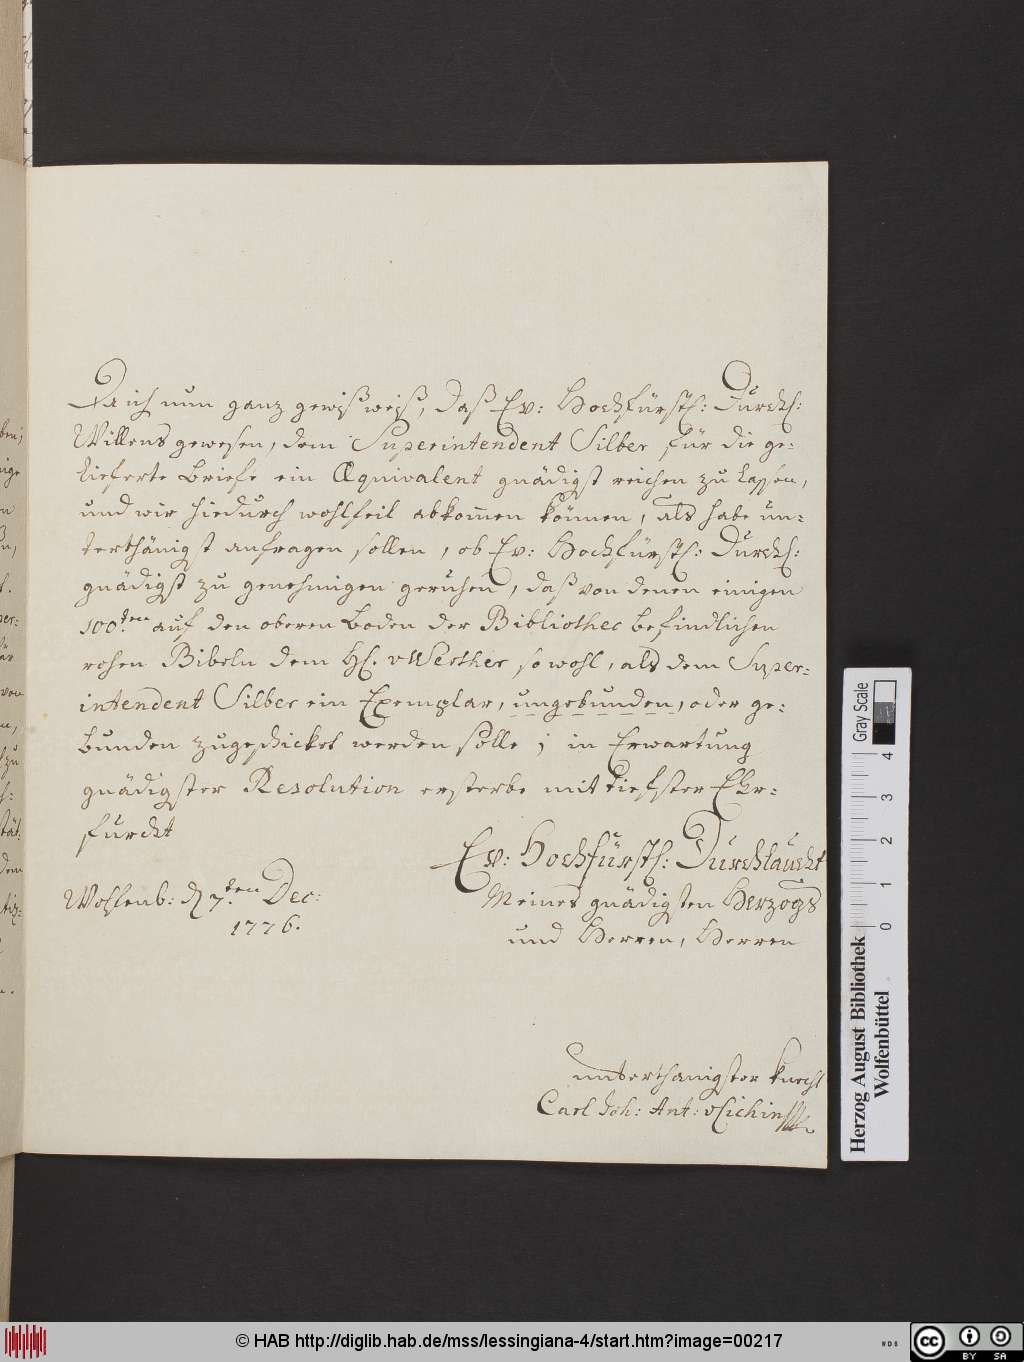 Da ich nun ganz gewiß weiß, daß Ew: Hochfürstl: Durchl:
Willens gewesen, dem Superintendent Silber für die ge-
lieferte Briefe ein Æquivalent gnädigst reichen zu laßen,
und wir hiedurch wohlfeil abkom̄en können, als habe un-
terthänigst anfragen sollen, ob Ew: Hochfürstl: Durchl:
gnädigst zu genehmigen geruhen, daß von denen einigen
100.ten auf den oberen Boden der Bibliothec befindlichen
rohen Bibeln dem H. sowohl, als dem Super-
intendent Silber ein Exemplar, ungebunden, oder ge-
bunden zugeschicket werden solle; in Erwartung
gnädigster Resolution ersterbe mit tiefster Ehr-
furcht
Ew: Hochfürstl: Durchlaucht
Meines gnädigsten Herzogs
und Herren, Herren
Wolfenb: d 7.ten Dec:
1776.
unterthänigster Knecht
Carl Joh: Ant: vCichin
Gray Scale
0 1 2 3 4
Herzog August Bibliothek
Wolfenbüttel
© HAB http://diglib.hab.de/mss/lessingiana-4/start.htm?image=00217
cc BY SA